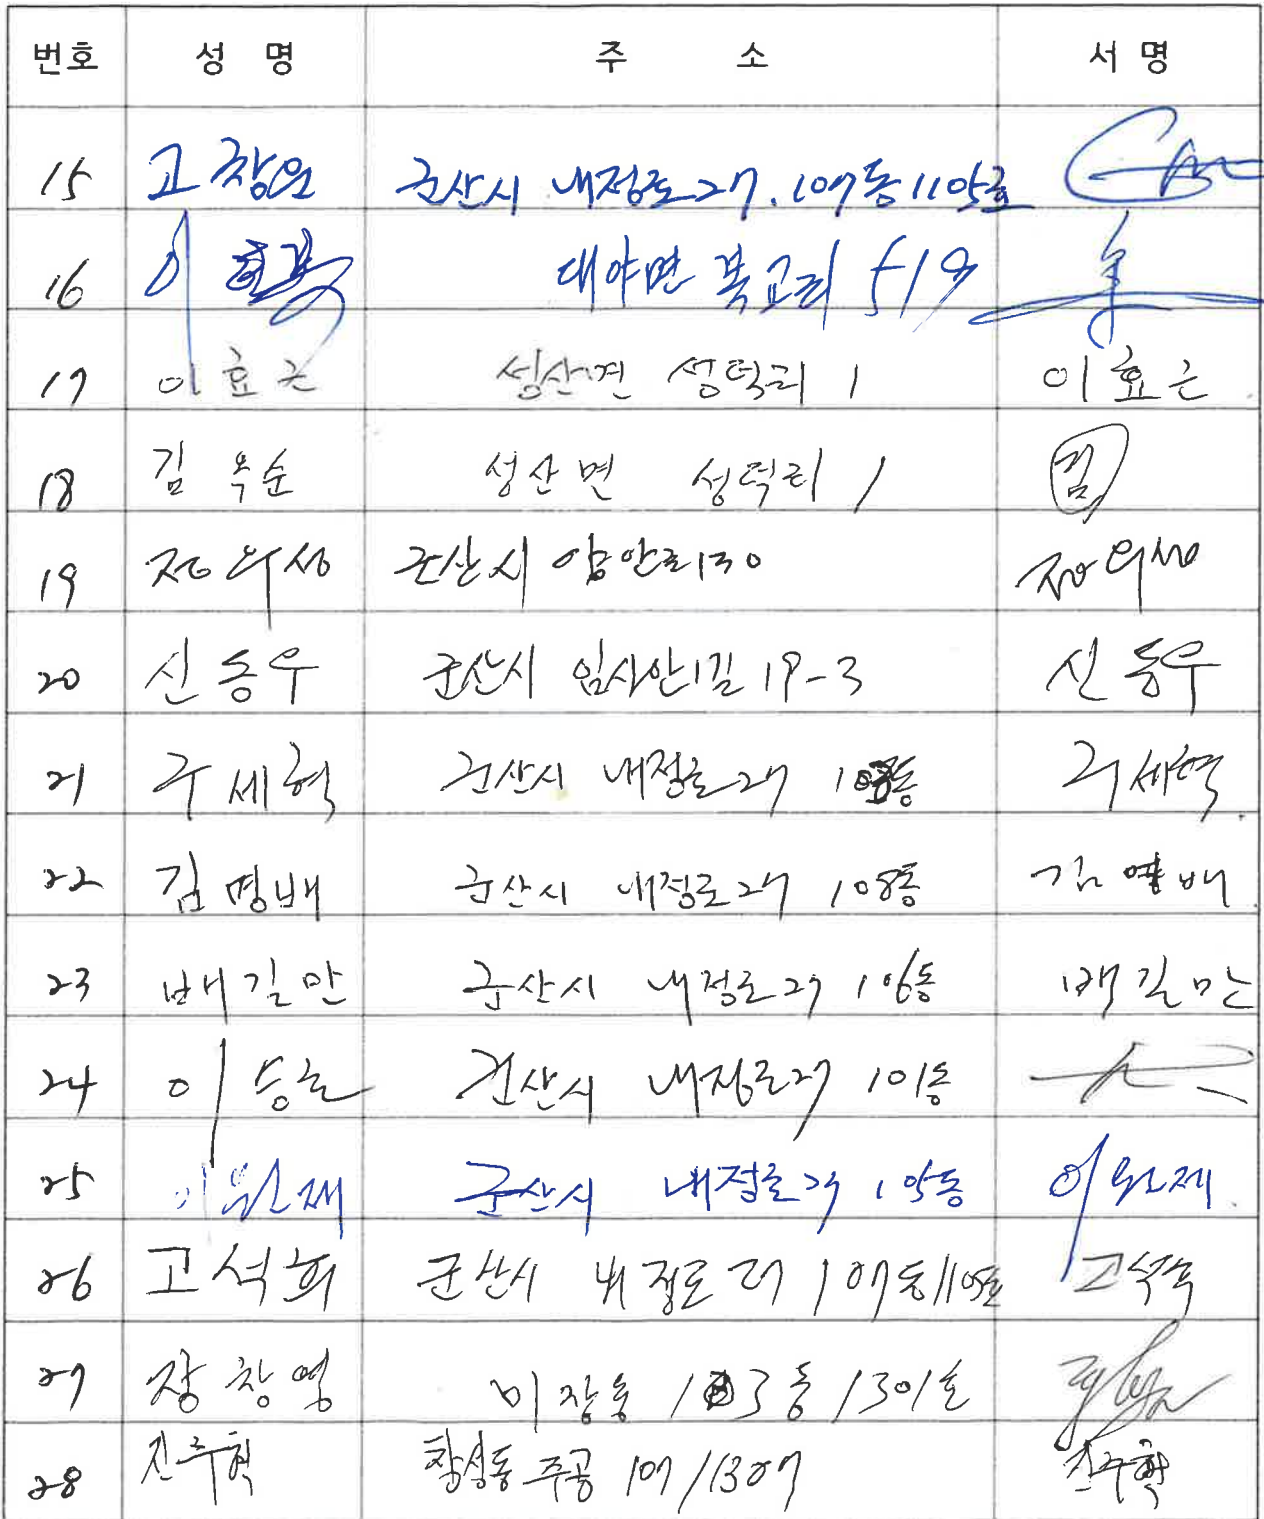 번호 성 명 주 소 서 명
15 고창원 군산시 내정로27. 107동1105호
16 이현복 대야면 복교리 519
17 이효근 성산면 성덕리 1 이효근
18 김옥순 성산면 성덕리 1 김
19 정우성 군산시 130
20 신동우 군산시 임사안1길 19-3 신동우
21 구세혁 군산시 내정로27 구세혁
22 김명배 군산시 내정로27 108동 김명배
23 배길만 군산시 내정로27 106동 배길만
24 이승호 군산시 내정로27 101동
25 이원재 군산시 내정로27 105동 이원재
26 고석희 군산시 내정로27 107동1105호 고석희
27 장창영 미장동 103동 1301호
28 진주혁 주공 107/1307 진주혁